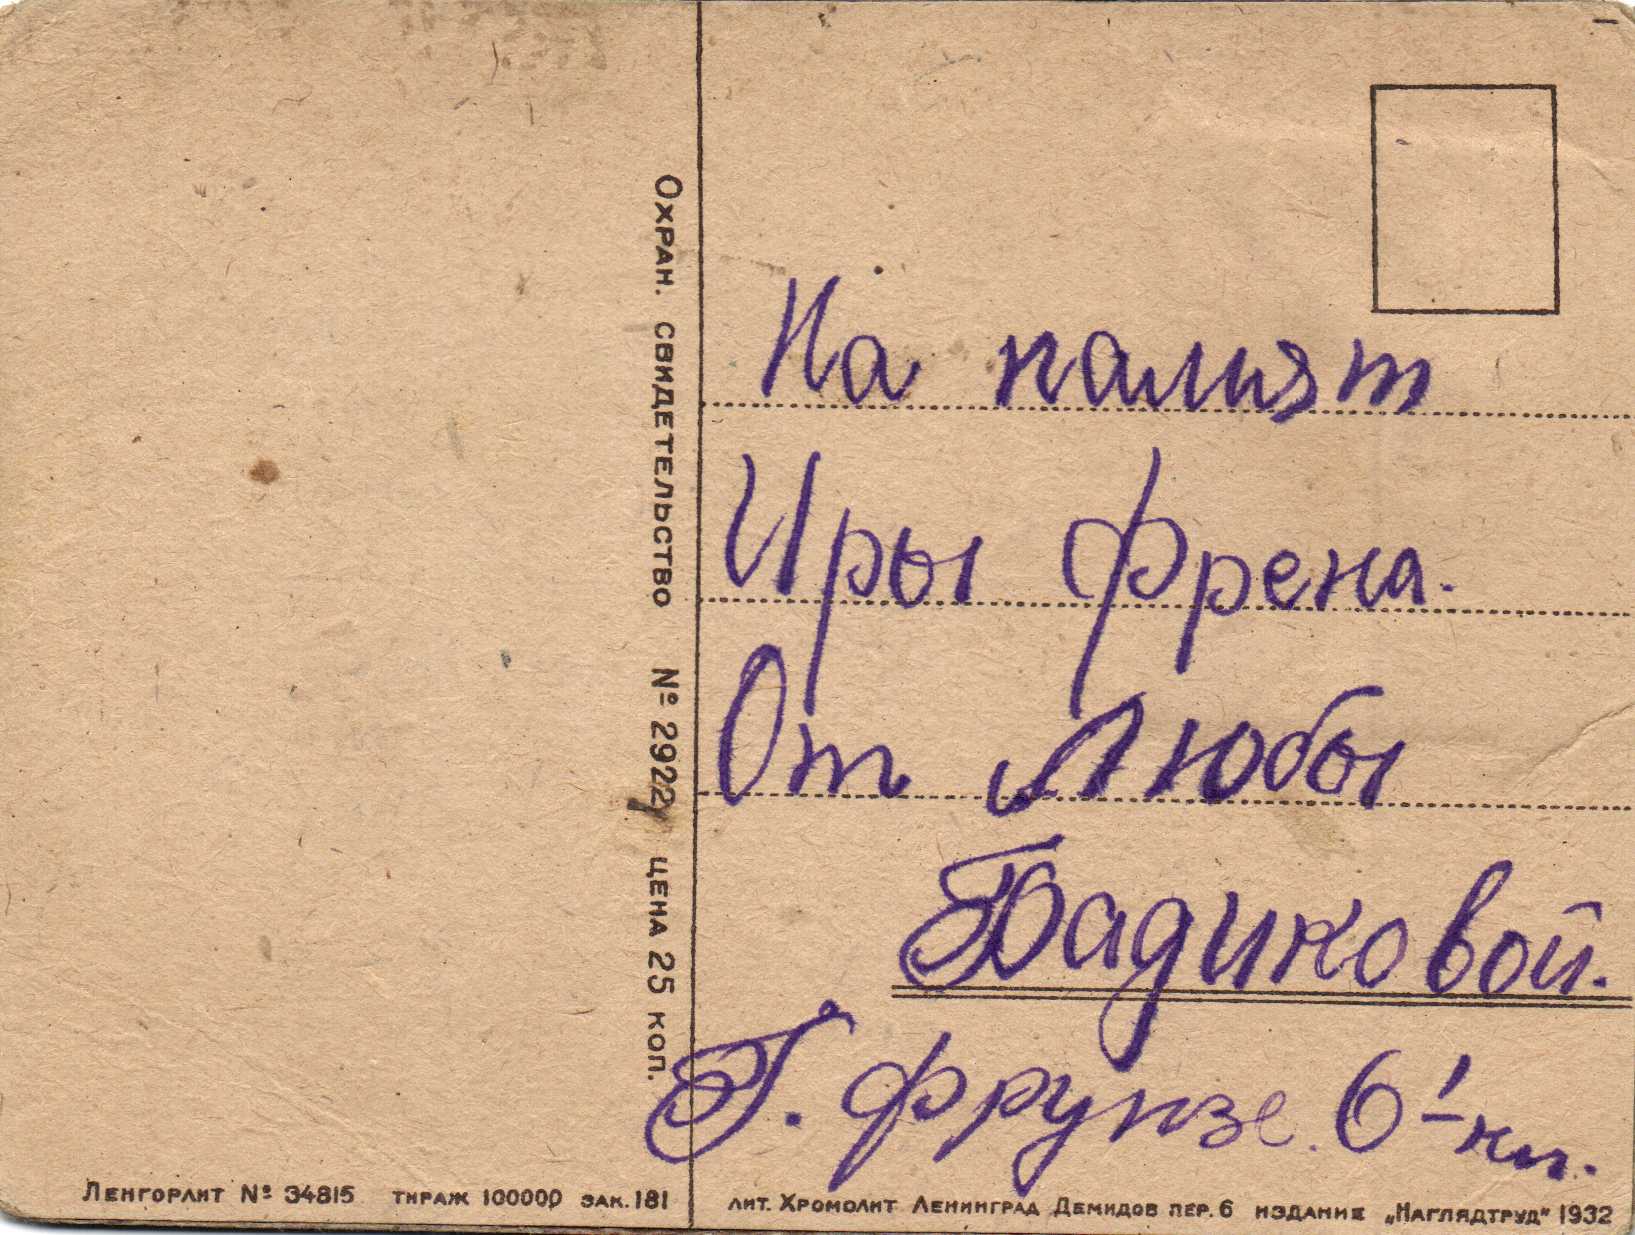 На памят
Иры Френа.
От Любы
Бадиковой.
Г. Фрунзе. 6 1-кл.
Охран. свидетельство № 2922, цена 25 коп.
Ленгорлит № 34815 тираж 100000 зак. 181
лит. Хромолит Ленинград Демидов пер. 6 издание „Наглядтруд" 1932